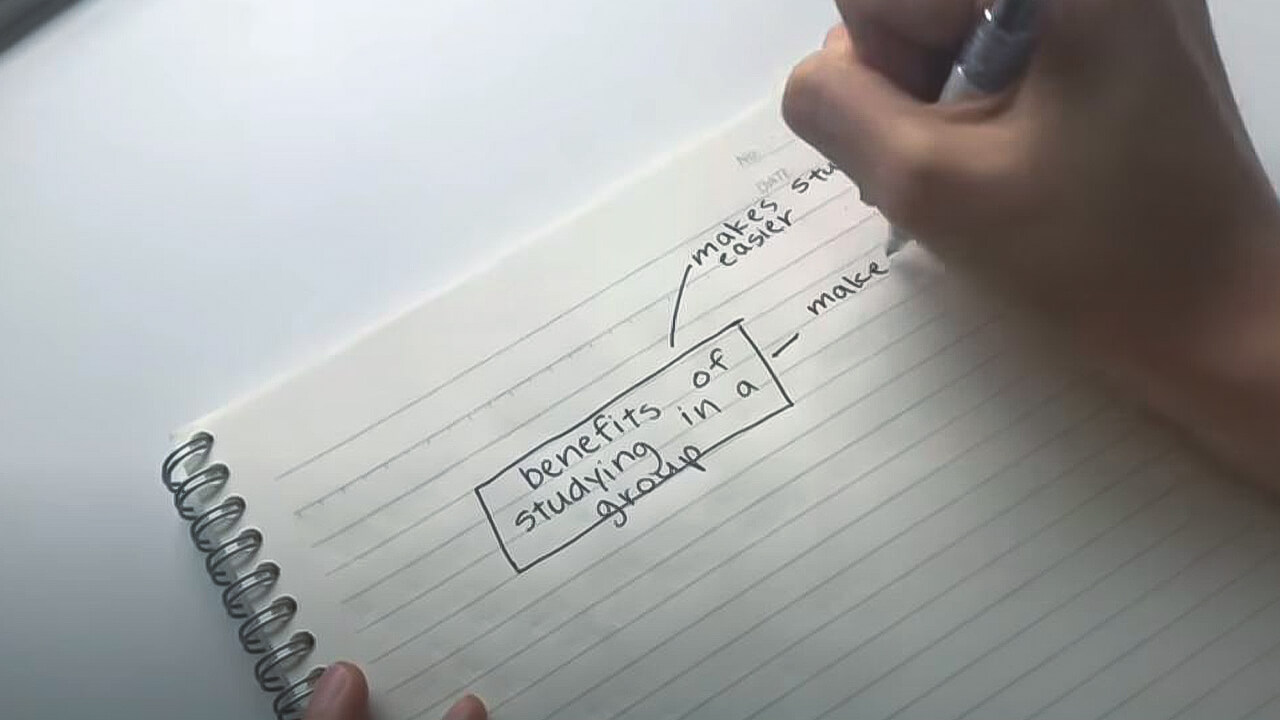 No.
DATE
makes stu
easier
make
benefits of
studying in a
group